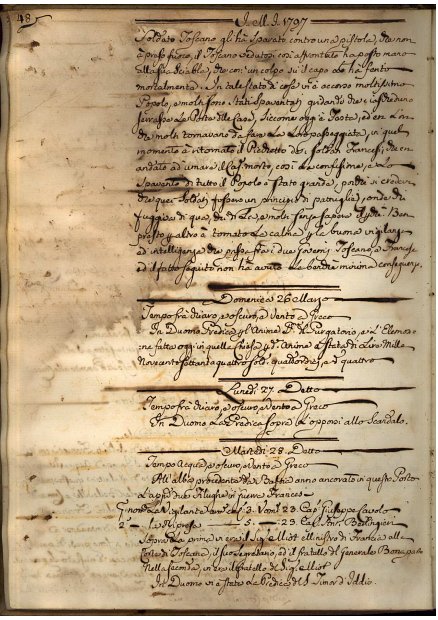 48
1797
Soldato Toscano gli hà sparato contro una pistola, che non
à preso fuoco, il Toscano vedutosi così affrontato ha posto mano
alla sua sciabla, che con un colpo su il capo lo ha ferito
mortalmente. In tale stato di cose vi è accorso moltissimo
Popolo, e molti sono stati spaventati gridando che si
serrasse le Porte delle Case, siccome oggi è Feste, ed era
molti tornavano da fare la loro passeggiata, in quel
momento è ritornato il Picchetto de' Soldati Francesi, che
andato ad umare il Cap. morto, così la confusione, e lo
Spavento di tutto il Popolo è stato grande, poiche si crede
che quei Soldati fossero un principio di battaglia, onde chi
fuggiva di quà, chi di là, e molti senza sapere il Ben
presto per altro è tornata la calma, e la buona
ed intelligenza che passa fra i due Governi Toscano, e Francese
ed il fatto seguito non ha avuto la benchè minima conseguenza.
Domenica 26 Marzo
Tempo frà chiaro, e oscuro, e vento a Greco
In Duomo Predica p l'Anime del Purgatorio, e l'Elemosi=
=ne fatte oggi in quelle Chiese p d.e Anime è stata di Lire Mille
Novecento settanta quattro soldi quattordici, e d. quattro
Lunedì 27. Detto
Tempo frà chiaro, e oscuro, e vento a Greco
In Duomo la Predica sopra l'opporsi allo Scandalo.
Martedì 28. Detto
Tempo acqua, e oscuro, e vento a Greco
All'alba procedente da Bastia anno ancorato in questo Porto
Filughe in guerra Francesi
Vigilante 3. Uom. 23. Cap. Giuseppe Cavolo
2.a la Ripresa 5. 23. Cap. Ant. Berlingieri
Sopra la prima vi era il Sig. Miot Ministro di Francia alla
Corte di Toscana, il suo Segretario, ed il fratello del Generale Bonaparte
Nella seconda, vi era il fratello di d. Sig. Miot
In Duomo vi è stata la Predica del S. Timor d'Iddio.